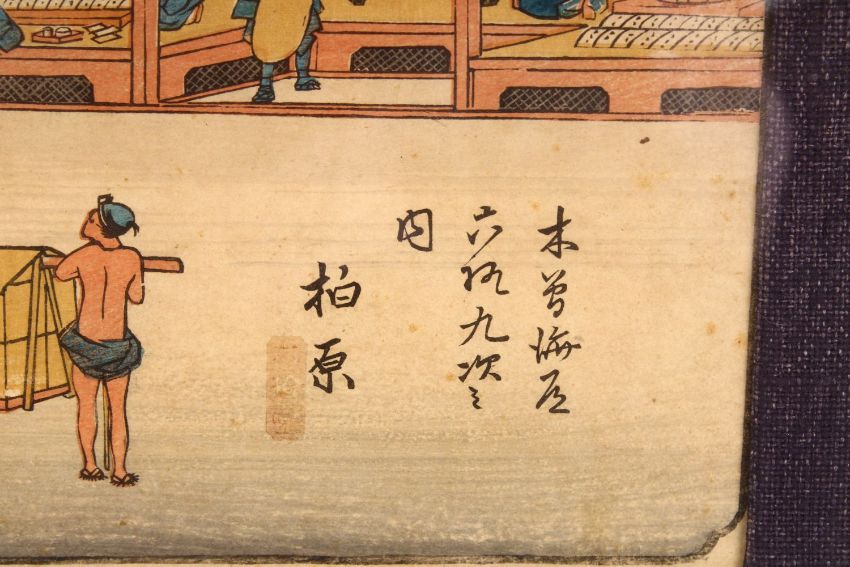 木曽海道
六拾九次之
内
柏原